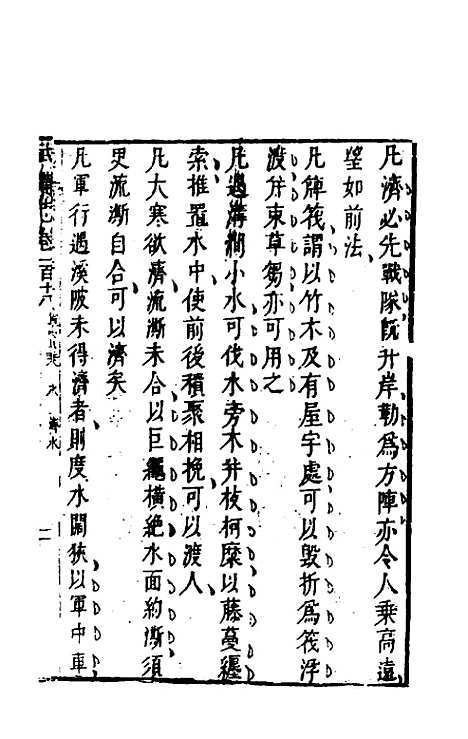 凡濟必先戰隊既升岸勒為方陣亦令人乘高遠
望如前法
凡縛筏謂以竹木及有屋宇處可以毀折為筏浮
渡并束草芻亦可用之
凡遇溝澗小水可伐水旁木并枝柯縻以藤蔓纏
索推置水中使前後積聚相挽可以渡人
凡大寒欲濟流澌未合以巨繩橫絕水面約澌須
更流澌自合可以濟矣
凡軍行遇溪陂未得濟者則度水闊狹以軍中車
卷二百十 水 濟水 二